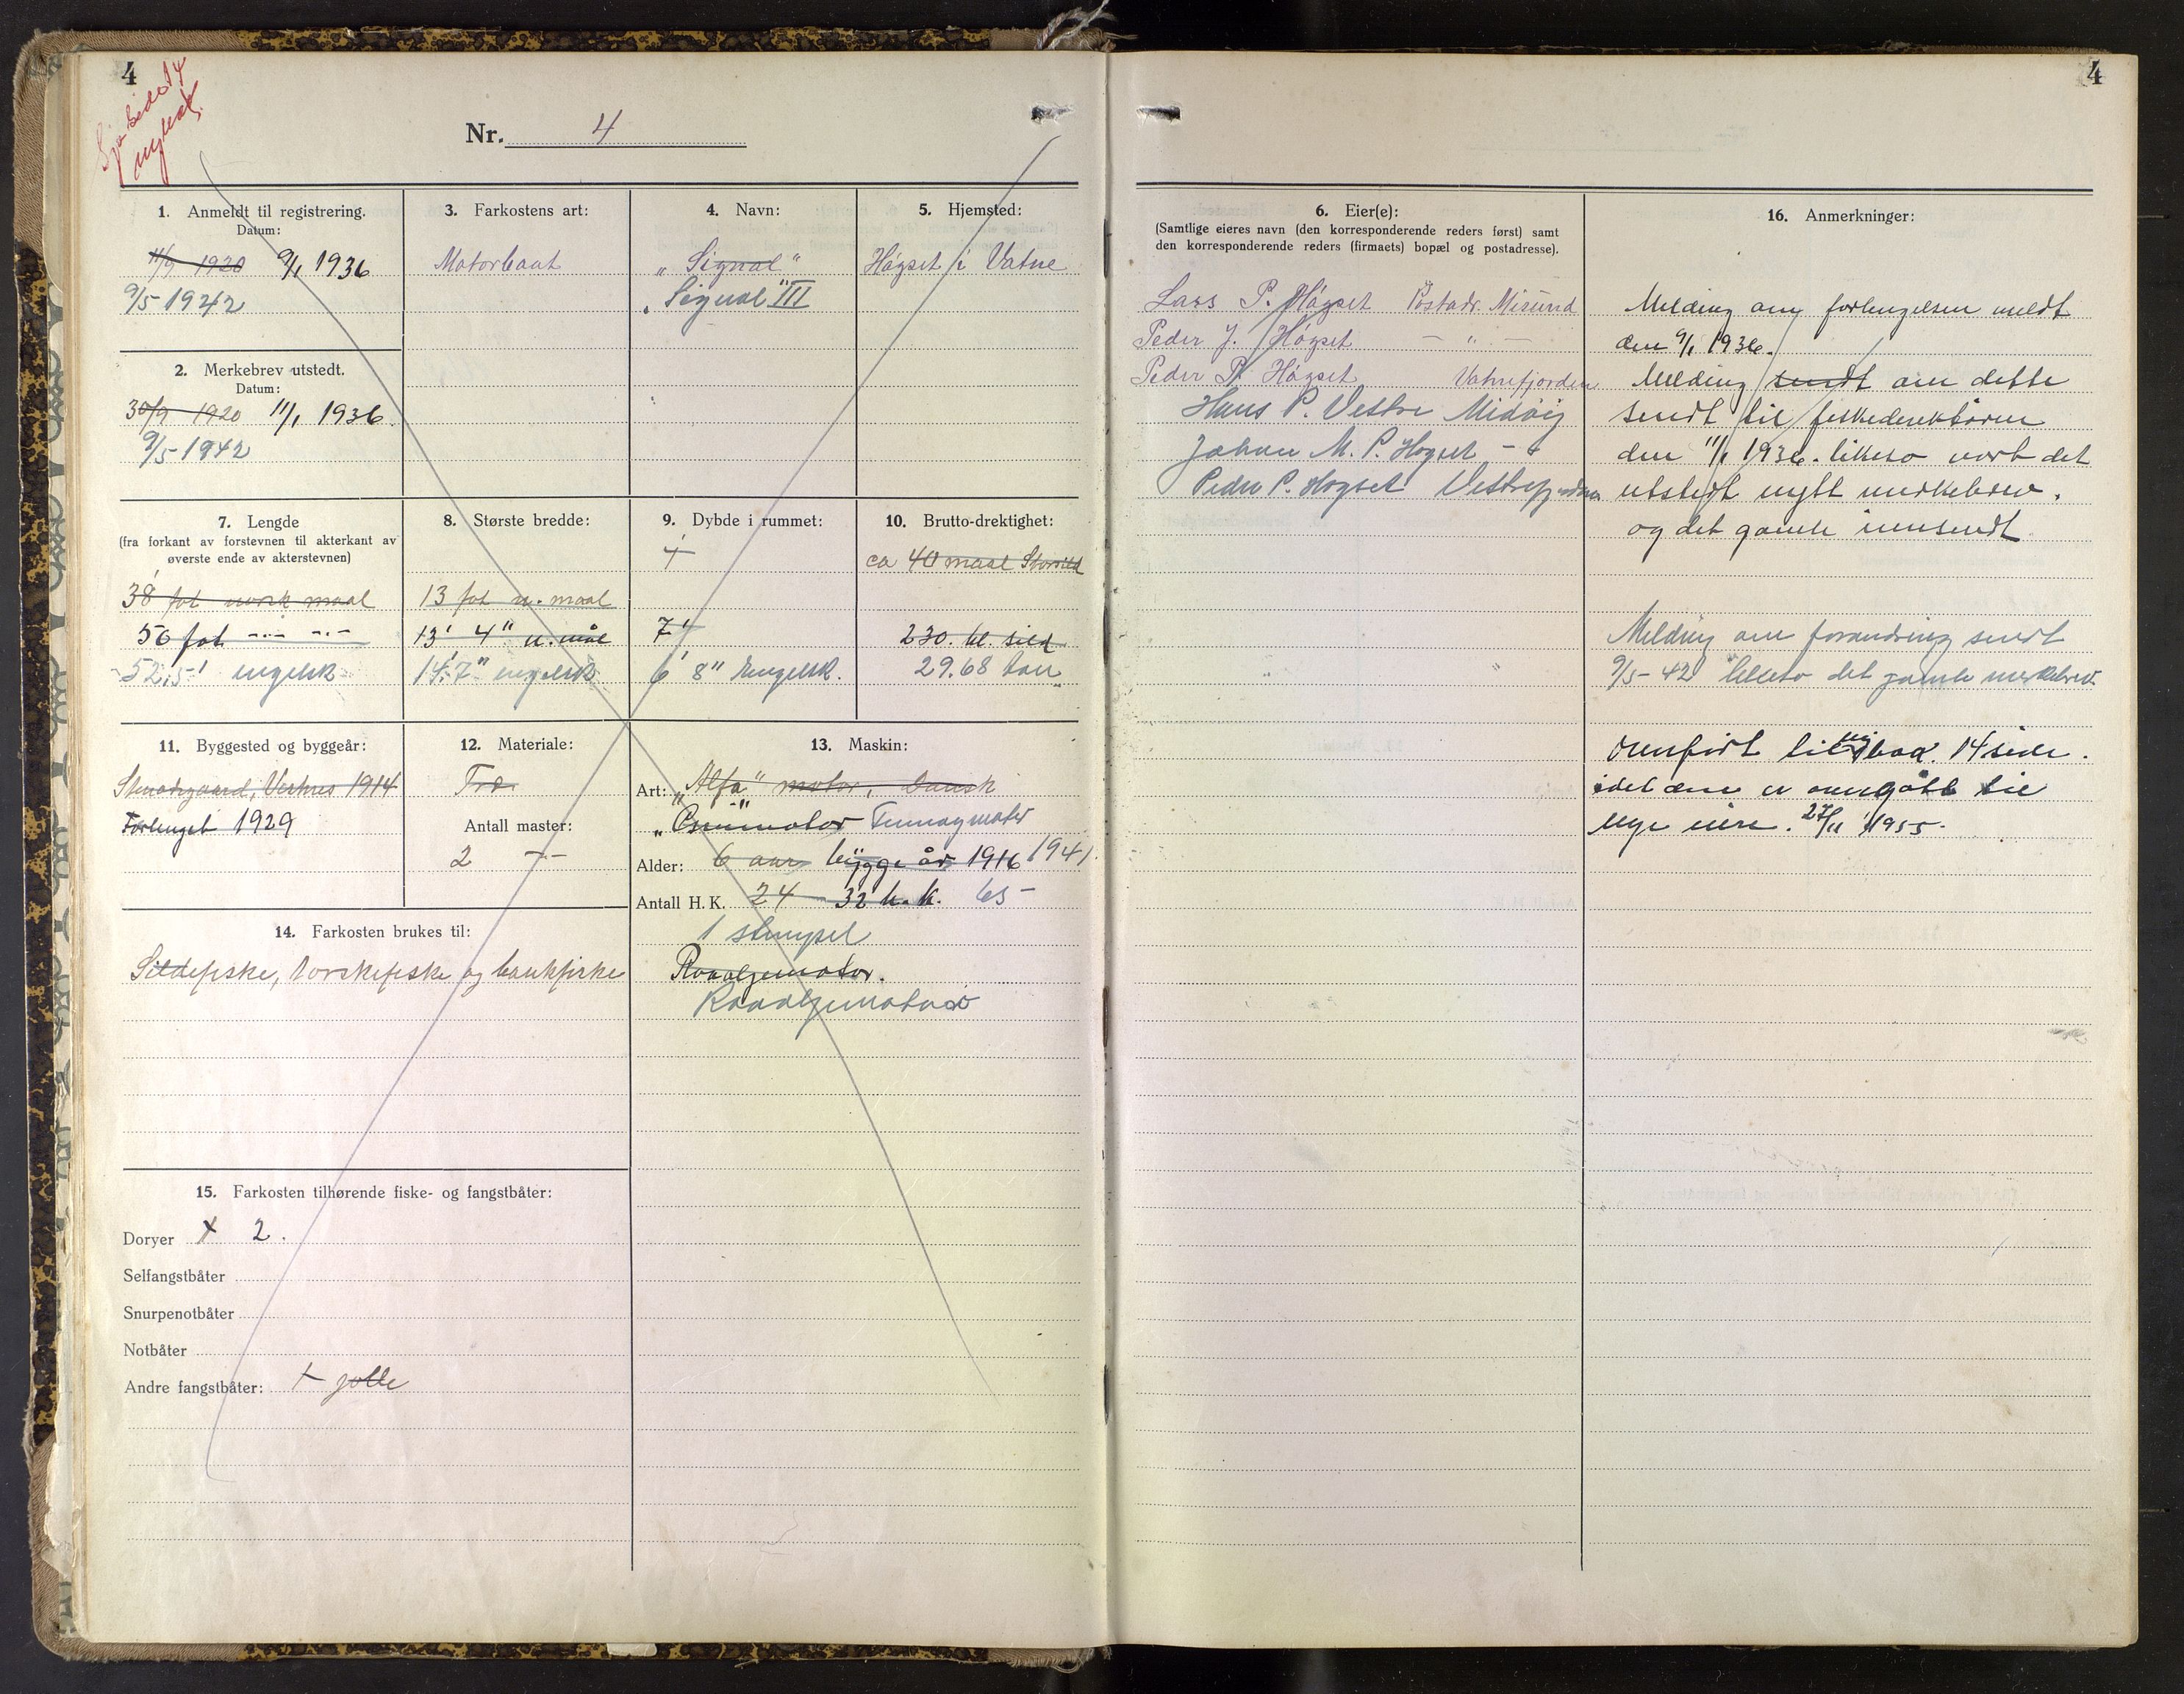 4
Sjå side 14
nybok.
Nr. 4
1. Anmeldt til registrering.
Datum:
11/9 1920 9/1 1936
9/5 1942
2. Merkebrev utstedt.
Datum:
30/9 1920 11/1 1936.
9/5-1942
3. Farkostens art:
Motorbaat
4. Navn:
"Signal"
"Signal" III
5. Hjemsted:
Högset i Vatne
7. Lengde
(fra forkant av forstevnen til akterkant av
øverste ende av akterstevnen)
38 fot norsk maal
50 fot -"- -"-
52,5' engelsk
8. Største bredde:
13 fot n. maal
13' 4" n. mål
14' 7" engelsk
9. Dybde i rummet:
7'
6' 8" Engelsk.
10. Brutto-drektighet:
ca 40 maal Storsild
230. hl. sild
29.68 tonn
11. Byggested og byggeår:
Vestnes 1914
Forlenget 1929
12. Materiale:
Træ
Antall master:
2 -"-
13. Maskin:
Art: "Alfa" motor, Dansk
motor
Alder: 6 aar bygge år 1916 1941.
Antall H.K. 24 32 h.k. 65-
1 stempel
Raaoljemotor.
Raaoljemotor
14. Farkosten brukes til:
Sildefiske, torskefiske og bankfiske
15. Farkosten tilhørende fiske- og fangstbåter:
Doryer x 2.
Selfangstbåter
Snurpenotbåter
Notbåter
Andre fangstbåter: + jolle
4
6. Eier(e):
(Samtlige eieres navn (den korresponderende reders først) samt
den korresponderende reders (firmaets) bopæl og postadresse).
Lars P. Högset Postadr. Misund
Peder J. Högset — " —
Peder P. Högset Vatnefjorden
Hans P. Vestre Midöy
Johan M. P. Hogset - "
Peder P. Hogset Vestrefjorden
16. Anmerkninger:
Melding om forlengelsen meldt
den 9/1 1936.
Melding sendt om dette
sendt til fiskedirektören
den 11/1 1936. likeso vort det
utstedt nytt merkebrev.
og det gamle innsendt
Melding om forandring sendt
9/5-42 likeso det gamle merkebrev.
Overfört til ny bok. 14 side.
idet den er overgått til
nye eiere. 27/11 1955.